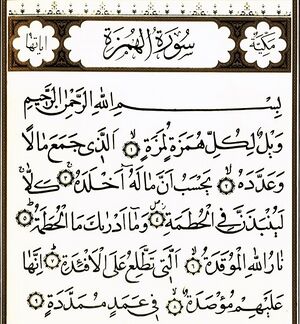 مكية سورة الهمزة آياتها
بِسْمِ اللَّهِ الرَّحْمَٰنِ الرَّحِيمِ
وَيْلٌ لِكُلِّ هُمَزَةٍ لُمَزَةٍ ١ الَّذِي جَمَعَ مَالًا
وَعَدَّدَهُ ٢ يَحْسَبُ أَنَّ مَالَهُ أَخْلَدَهُ ٣ كَلَّا
لَيُنْبَذَنَّ فِي الْحُطَمَةِ ٤ وَمَا أَدْرَاكَ مَا الْحُطَمَةُ ٥
نَارُ اللَّهِ الْمُوقَدَةُ ٦ الَّتِي تَطَّلِعُ عَلَى الْأَفْئِدَةِ ٧ إِنَّهَا
عَلَيْهِمْ مُؤْصَدَةٌ ٨ فِي عَمَدٍ مُمَدَّدَةٍ ٩